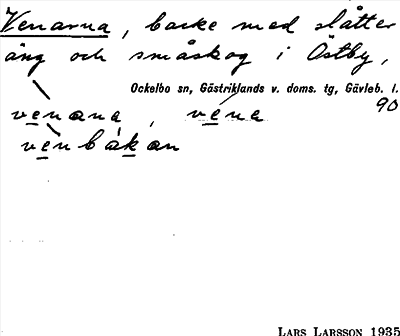 Venarna, backe med slåtter
äng och småskog i Östby,
Ockelbo sn, Gästriklands v. doms. tg, Gävleb. l.
90
venana, vena
venbakan
LARS LARSSON 1935